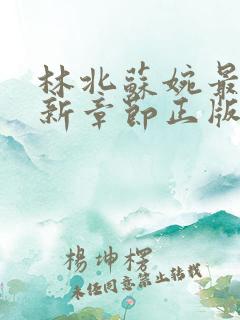 林北蘇婉最
新章節正版
楊坤楞
未經同意禁止轉載